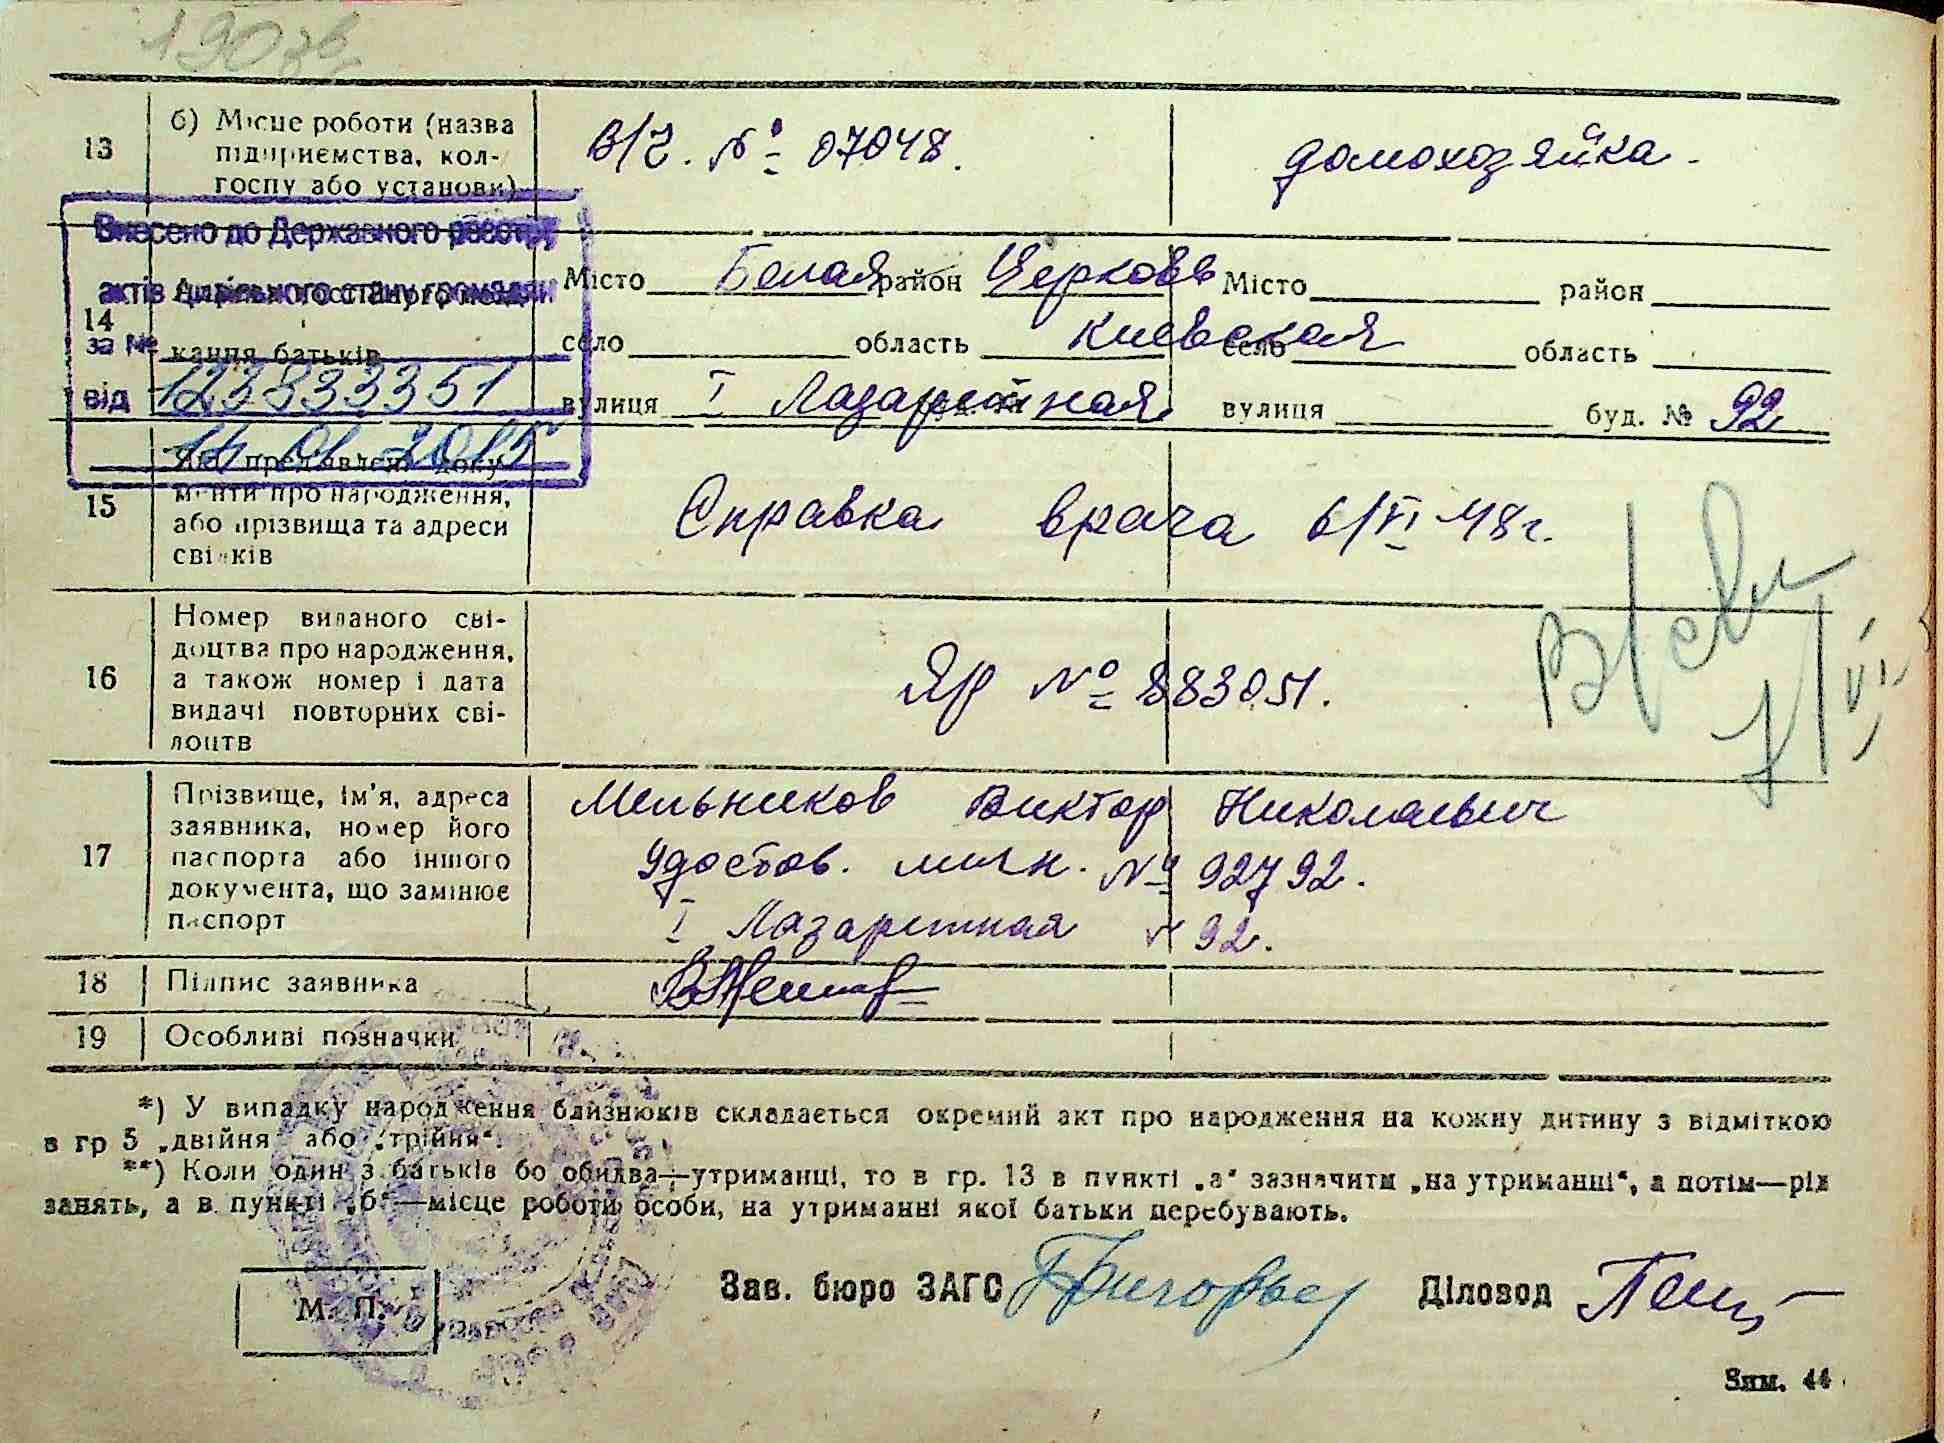 13
б) Місце роботи (назва
підприємства, кол-
госпу або установи)
В/Ч. № 07048.
домохозяйка.
Внесено до Державного реєстру
актів цивільного стану громадян
за №
123833351
від
14 01 2015
14
кання батьків
Місто Белая район Церковь
село область Киевская
вулиця I Лазаретная
Місто район
село область
вулиця буд. № 92
15
менти про народження,
або прізвища та адреси
свідків
Справка врача 6/VI-48г.
16
Номер виданого сві-
доцтва про народження,
а також номер і дата
видачі повторних сві-
доцтв
ЯР № 883051.
17
Прізвище, ім'я, адреса
заявника, номер його
паспорта або іншого
документа, що замінює
паспорт
Мельников Виктор Николаевич
Удостов. личн. № 92792.
I Лазаретная № 92.
18
Підпис заявника
19
Особливі позначки
*) У випадку народження близнюків складається окремий акт про народження на кожну дитину з відміткою
в гр 5 „двійня" або „трійня".
**) Коли один з батьків бо обидва—утриманці, то в гр. 13 в пункті „а" зазначити „на утриманні", а потім—рід
занять, а в пункті „б"—місце роботи особи, на утриманні якої батьки перебувають.
М. П.
Зав. бюро ЗАГС
Діловод
Зам. 44